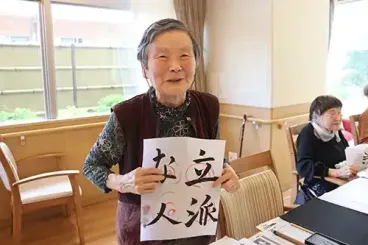 立派
な人